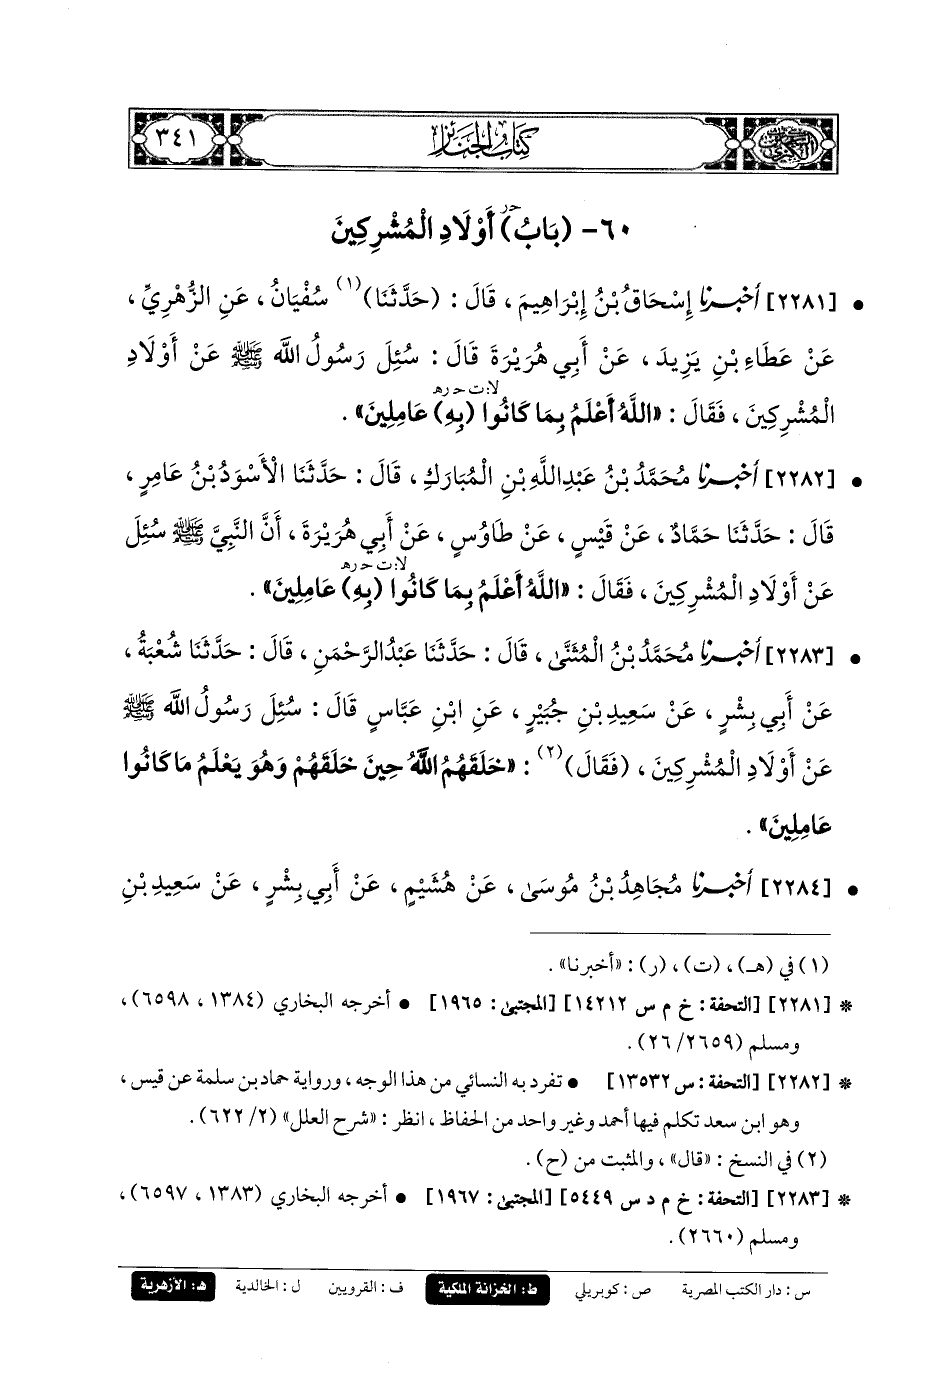 كتاب الجنائز ٣٤١
٦٠- (بَابُ) أَوْلَادِ الْمُشْرِكِينَ
• [٢٢٨١] أخبرنا إِسْحَاقُ بْنُ إِبْرَاهِيمَ، قَالَ: (حَدَّثَنَا)(١) سُفْيَانُ، عَنِ الزُّهْرِيِّ،
عَنْ عَطَاءِ بْنِ يَزِيدَ، عَنْ أَبِي هُرَيْرَةَ قَالَ: سُئِلَ رَسُولُ اللَّه ﷺ عَنْ أَوْلَادِ
الْمُشْرِكِينَ، فَقَالَ: «اللَّهُ أَعْلَمُ بِمَا كَانُوا (بِهِ) عَامِلِينَ».
• [٢٢٨٢] أخبرنا مُحَمَّدُ بْنُ عَبْدِ اللَّهِ بْنِ الْمُبَارَكِ، قَالَ: حَدَّثَنَا الْأَسْوَدُ بْنُ عَامِرٍ،
قَالَ: حَدَّثَنَا حَمَّادٌ، عَنْ قَيْسٍ، عَنْ طَاوُسٍ، عَنْ أَبِي هُرَيْرَةَ، أَنَّ النَّبِيَّ ﷺ سُئِلَ
عَنْ أَوْلَادِ الْمُشْرِكِينَ، فَقَالَ: «اللَّهُ أَعْلَمُ بِمَا كَانُوا (بِهِ) عَامِلِينَ».
• [٢٢٨٣] أخبرنا مُحَمَّدُ بْنُ الْمُثَنَّى، قَالَ: حَدَّثَنَا عَبْدُ الرَّحْمَنِ، قَالَ: حَدَّثَنَا شُعْبَةُ،
عَنْ أَبِي بِشْرٍ، عَنْ سَعِيدِ بْنِ جُبَيْرٍ، عَنِ ابْنِ عَبَّاسٍ قَالَ: سُئِلَ رَسُولُ اللَّه ﷺ
عَنْ أَوْلَادِ الْمُشْرِكِينَ، (فَقَالَ)(٢): «خَلَقَهُمُ اللَّهُ حِينَ خَلَقَهُمْ وَهُوَ يَعْلَمُ مَا كَانُوا
عَامِلِينَ».
• [٢٢٨٤] أخبرنا مُجَاهِدُ بْنُ مُوسَى، عَنْ هُشَيْمٍ، عَنْ أَبِي بِشْرٍ، عَنْ سَعِيدِ بْنِ
(١) في (هـ)، (ت)، (ر): «أخبرنا».
* [٢٢٨١] [التحفة: خ م س ١٤٢١٢] [المجتبى: ١٩٦٥] • أخرجه البخاري (١٣٨٤، ٦٥٩٨)،
ومسلم (٢٦/٢٦٥٩).
* [٢٢٨٢] [التحفة: س ١٣٥٣٢] • تفرد به النسائي من هذا الوجه، ورواية حماد بن سلمة عن قيس،
وهو ابن سعد تكلم فيها أحمد وغير واحد من الحفاظ، انظر: «شرح العلل» (٢/ ٦٢٢).
(٢) في النسخ: «قال»، والمثبت من (ح).
* [٢٢٨٣] [التحفة: خ م د س ٥٤٤٩] [المجتبى: ١٩٦٧] • أخرجه البخاري (١٣٨٣، ٦٥٩٧)،
ومسلم (٢٦٦٠).
س: دار الكتب المصرية ص: كوبريلي ط: الخزانة الملكية ف: القرويين ل: الخالدية هـ: الأزهرية